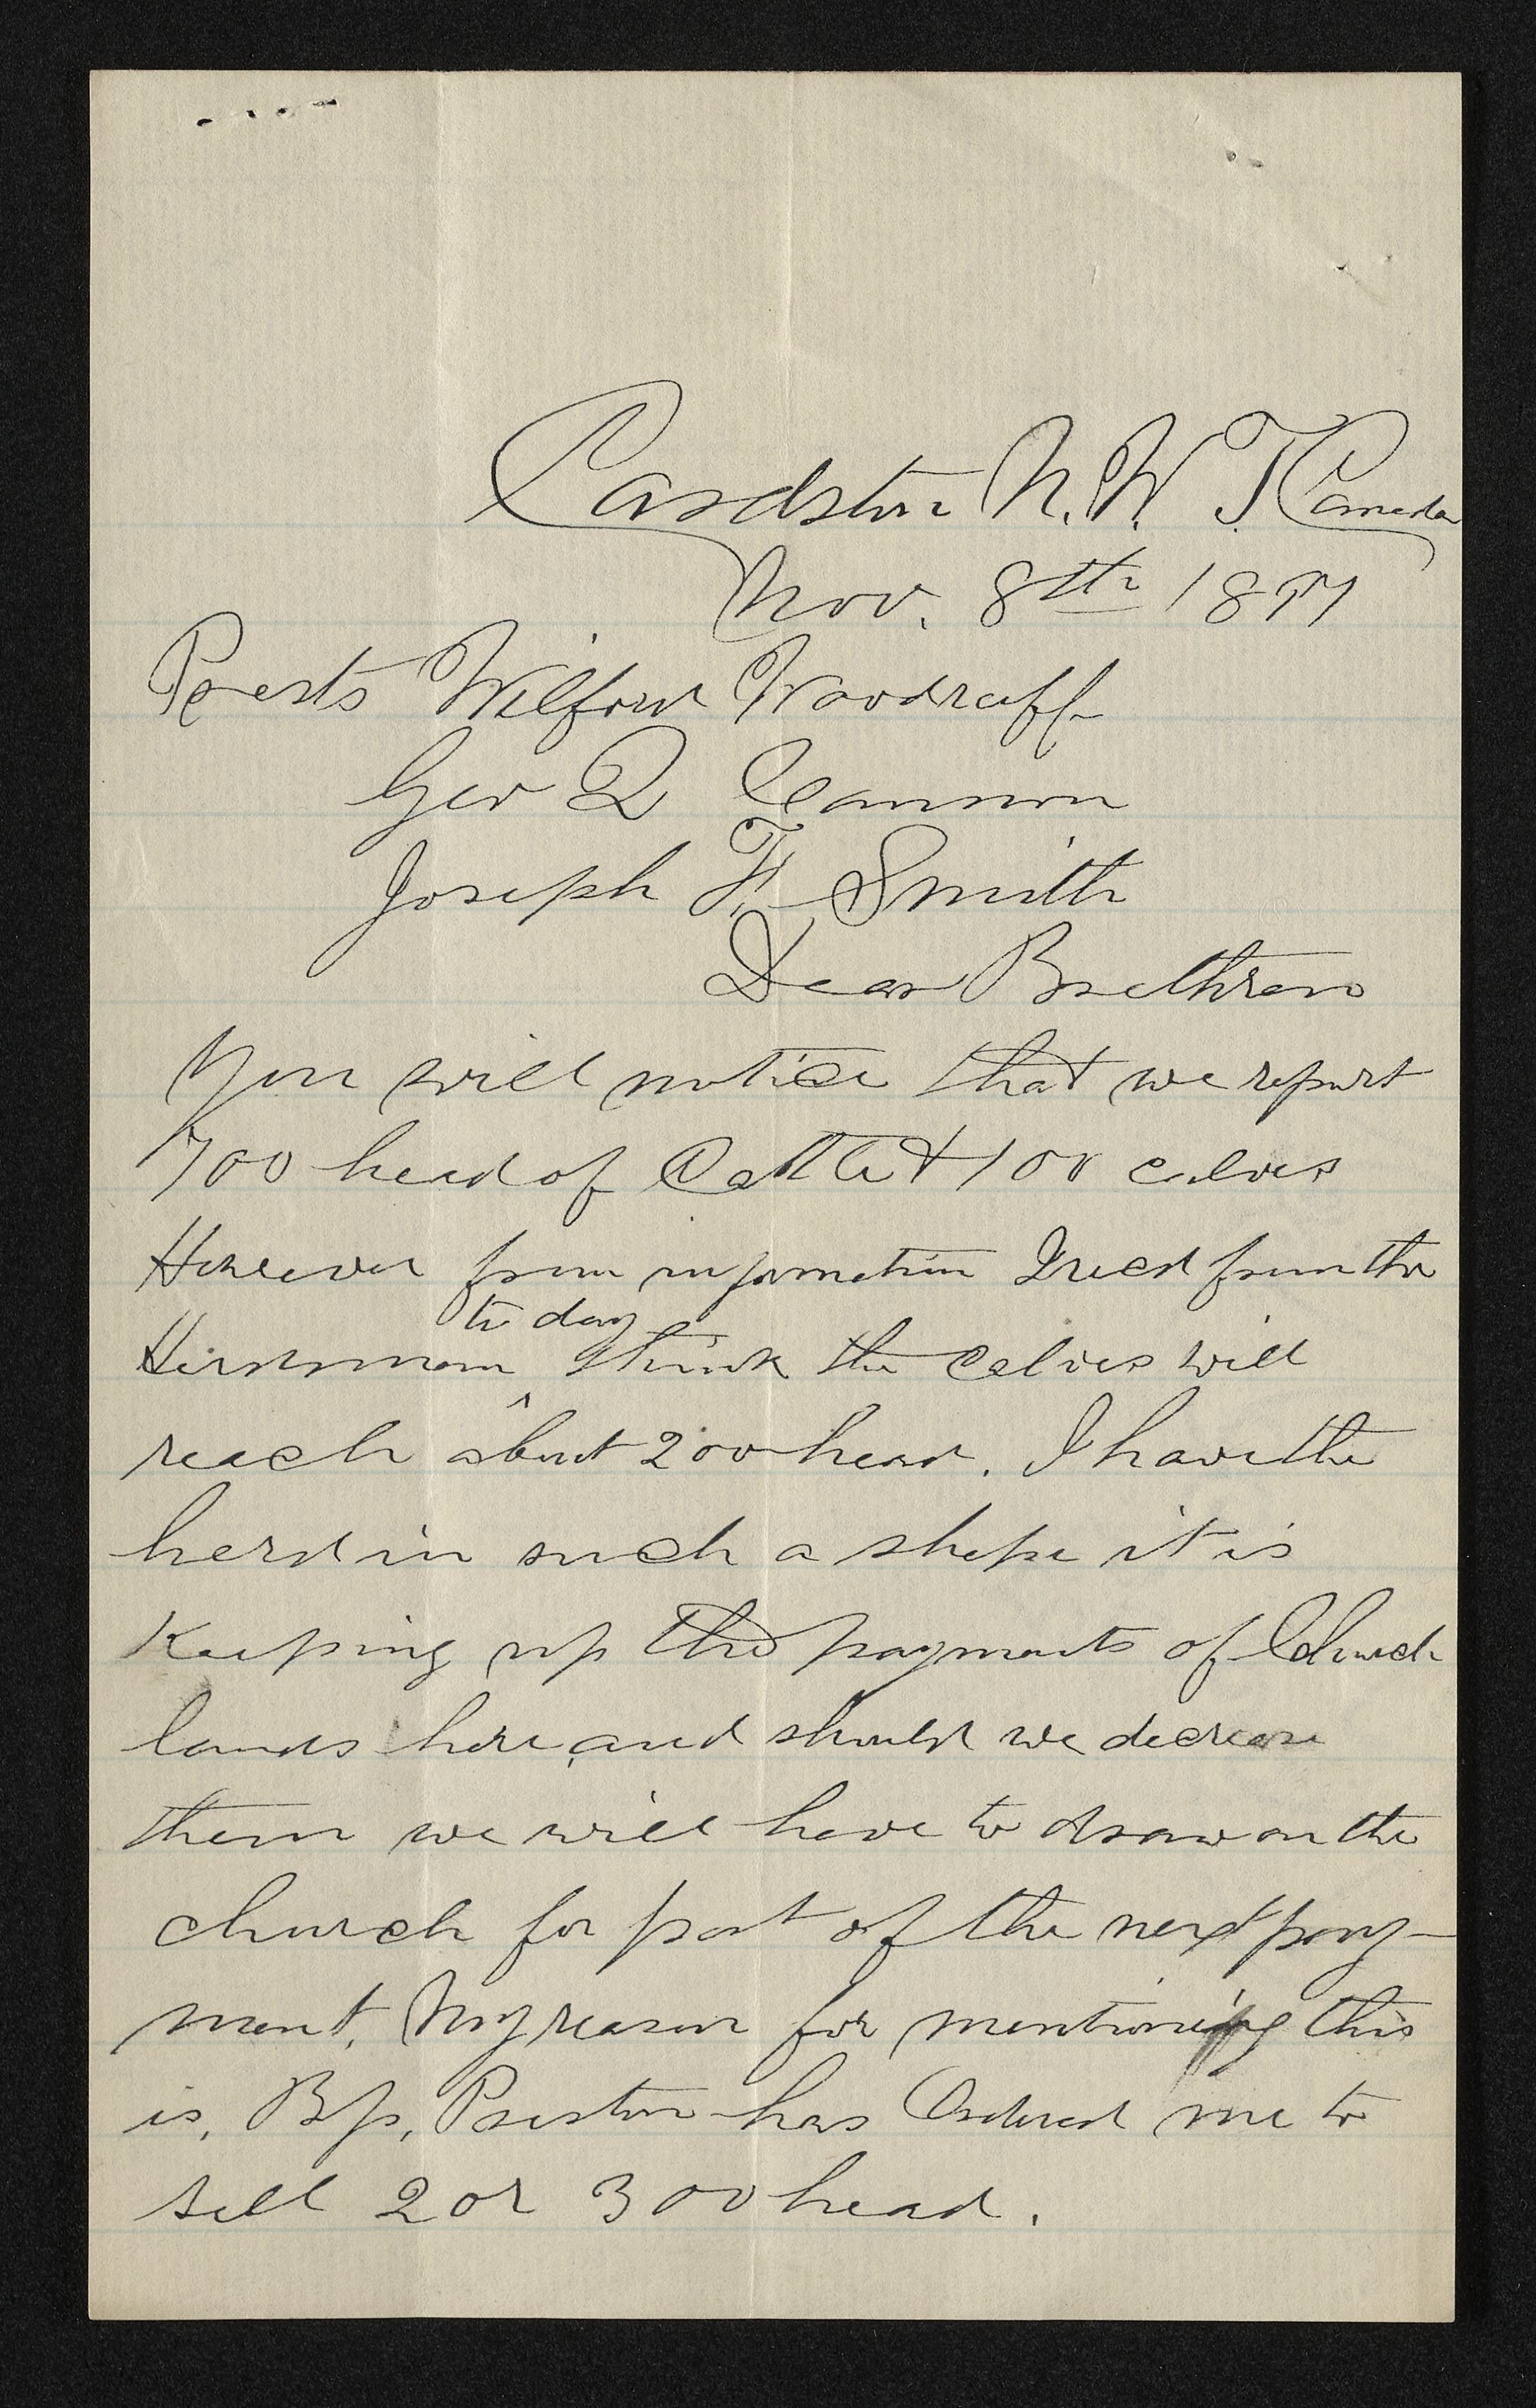 Cardston N. W. T. Canada
Nov. 8th 1897
Prests Wilford Woodruff
Geo Q Cannon
Joseph F. Smith
Dear Brethren
You will notice that we report
700 head of Cattle & 100 calves
However from information I recd from the
to day
Herdsman ^ I think the calves will
reach about 200 head. I have the
herd in such a shape it is
Keeping up the payments of Church
lands here, and should we decrease
them we will have to draw on the
church for part of the next pay-
ment. My reason for mentioning this
is, Bp. Preston has Ordered me to
sell 2 or 300 head.